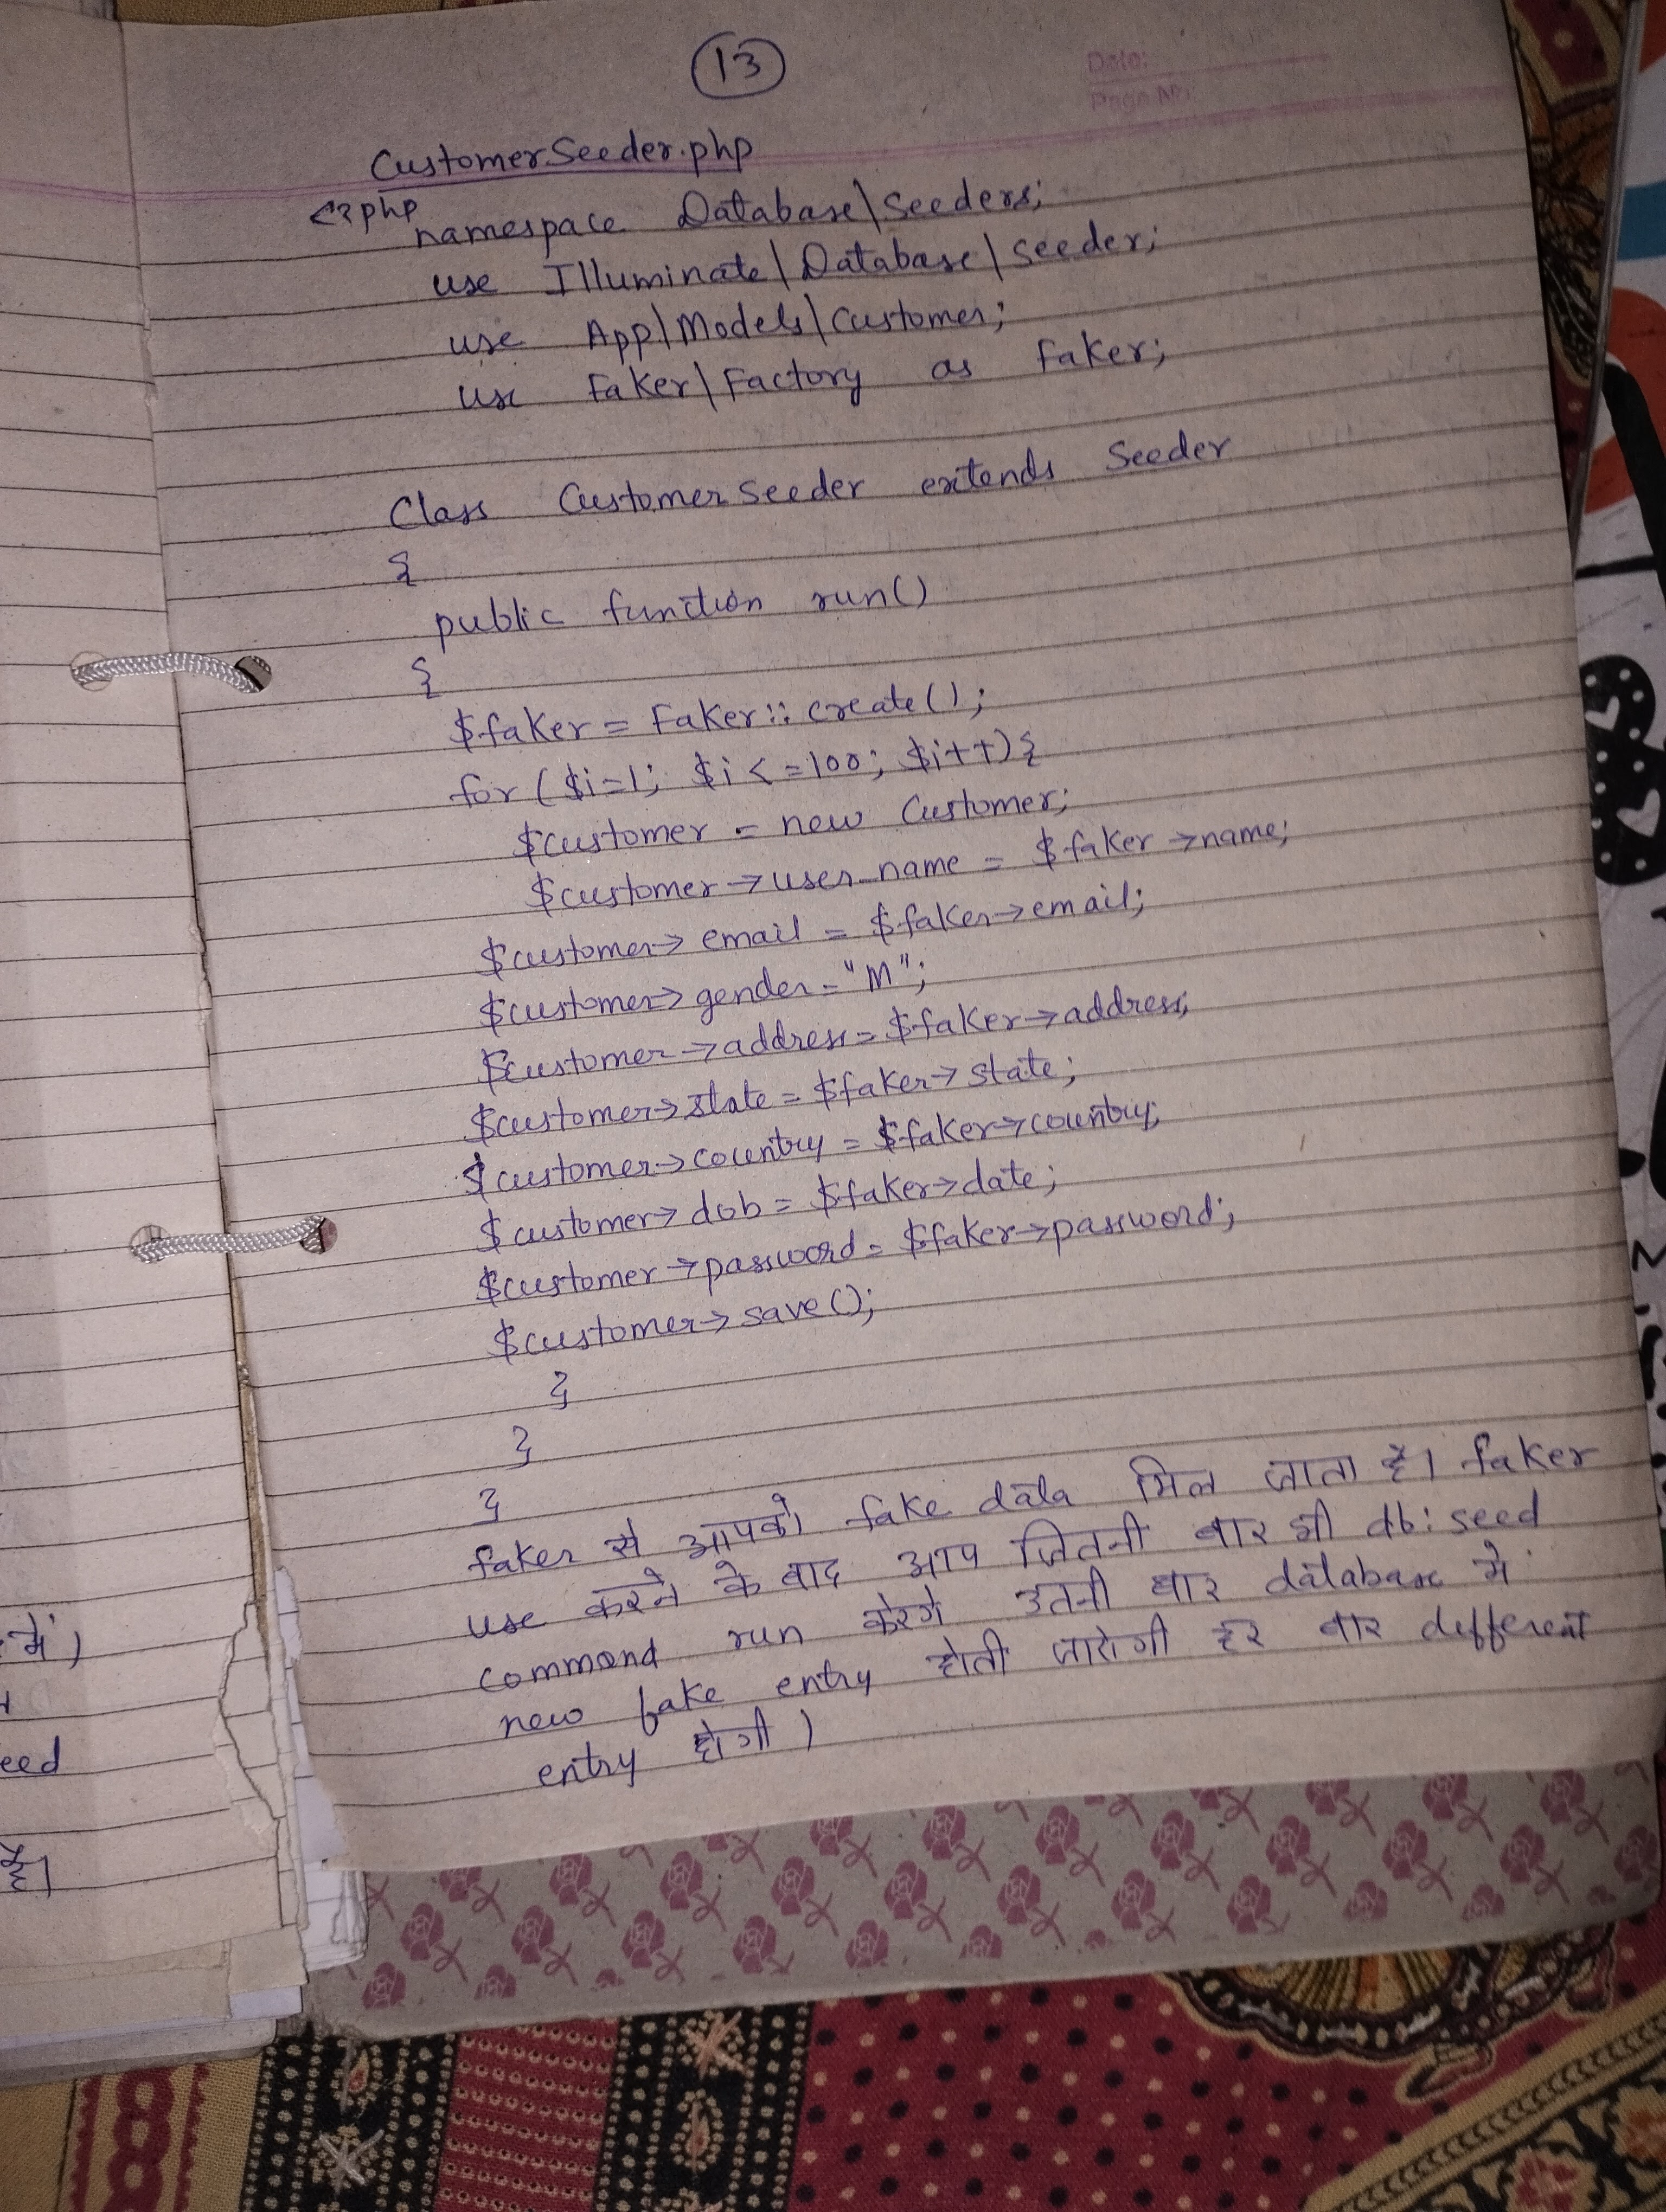 13
Date:
Page No:
CustomerSeeder.php
<?php
namespace Database\Seeders;
use Illuminate\Database\Seeder;
use App\Models\Customer;
use Faker\Factory as Faker;
Class CustomerSeeder extends Seeder
{
public function run()
{
$faker = Faker::create();
for ($i=1; $i<=100; $i++){
$customer = new Customer;
$customer->user_name = $faker->name;
$customer->email = $faker->email;
$customer->gender = "M";
$customer->address = $faker->address;
$customer->state = $faker->state;
$customer->country = $faker->country;
$customer->dob = $faker->date;
$customer->password = $faker->password;
$customer->save();
}
}
}
faker से आपको fake data मिल जाता है। faker
use करने के बाद आप जितनी बार भी db:seed
command run करेगे उतनी बार database मे
new fake entry होती जाऐगी हर बार different
entry होगी।
में)
eed
है।